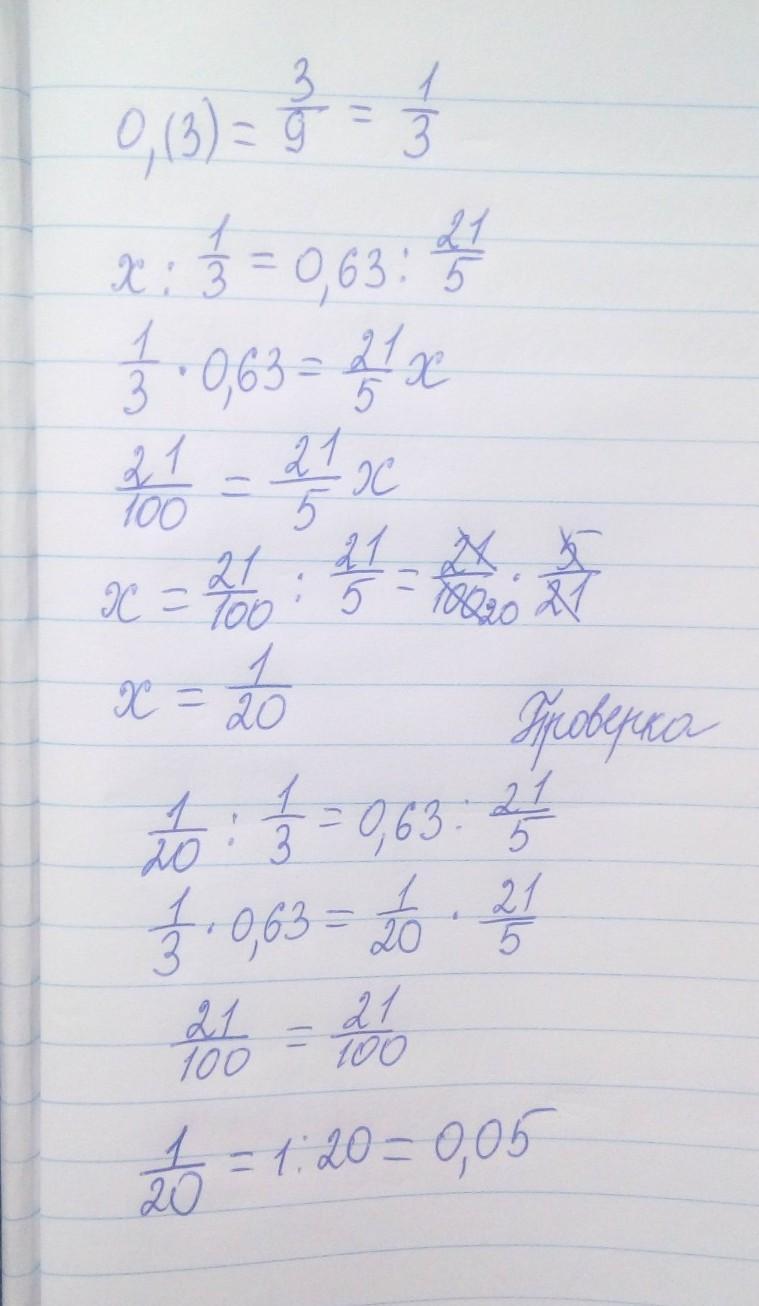 0,(3) = 3/9 = 1/3
x : 1/3 = 0,63 : 21/5
1/3 · 0,63 = 21/5 x
21/100 = 21/5 x
x = 21/100 : 21/5 = 21/100 20 · 5/21
x = 1/20
Проверка
1/20 : 1/3 = 0,63 : 21/5
1/3 · 0,63 = 1/20 · 21/5
21/100 = 21/100
1/20 = 1:20 = 0,05